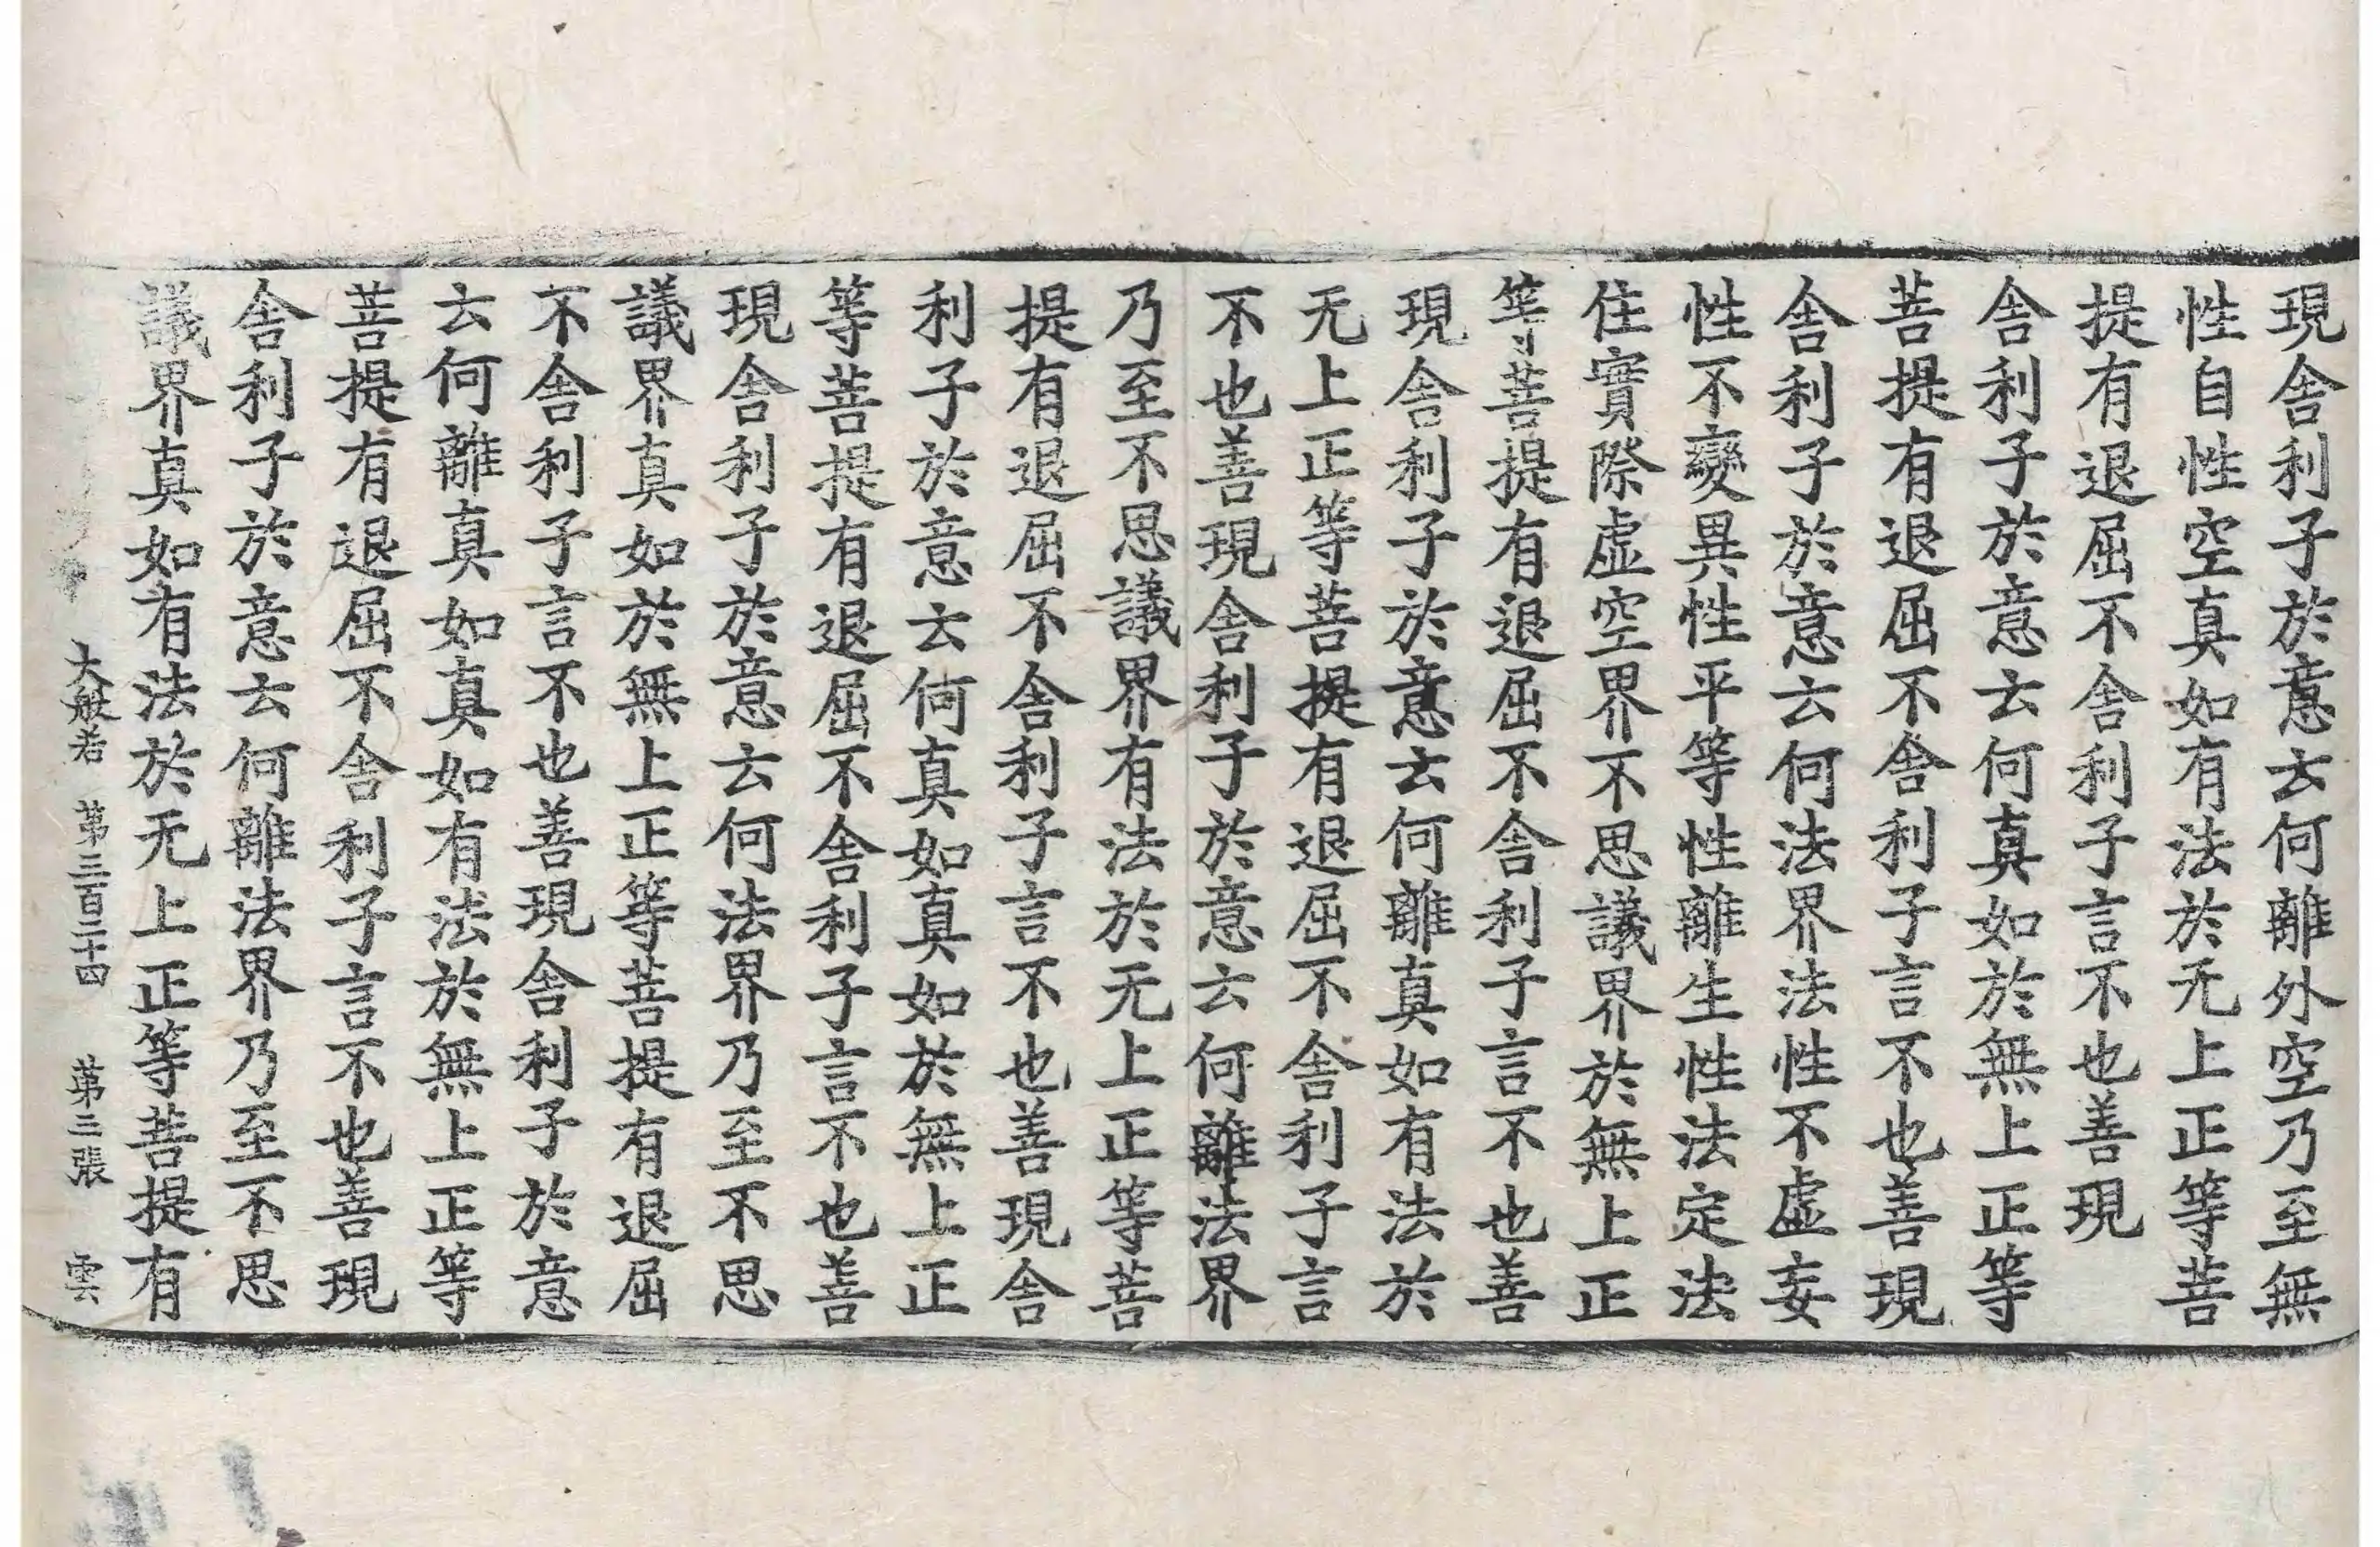 現舍利子於意云何離外空乃至無
性自性空真如有法於无上正等菩
提有退屈不舍利子言不也善現
舍利子於意云何真如於無上正等
菩提有退屈不舍利子言不也善現
舍利子於意云何法界法性不虛妄
性不變異性平等性離生性法定法
住實際虛空界不思議界於無上正
等菩提有退屈不舍利子言不也善
現舍利子於意云何離真如有法於
无上正等菩提有退屈不舍利子言
不也善現舍利子於意云何離法界
乃至不思議界有法於无上正等菩
提有退屈不舍利子言不也善現舍
利子於意云何真如真如於無上正
等菩提有退屈不舍利子言不也善
現舍利子於意云何法界乃至不思
議界真如於無上正等菩提有退屈
不舍利子言不也善現舍利子於意
云何離真如真如有法於無上正等
菩提有退屈不舍利子言不也善現
舍利子於意云何離法界乃至不思
議界真如有法於无上正等菩提有
大般若 第三百二十四 第三張 雲